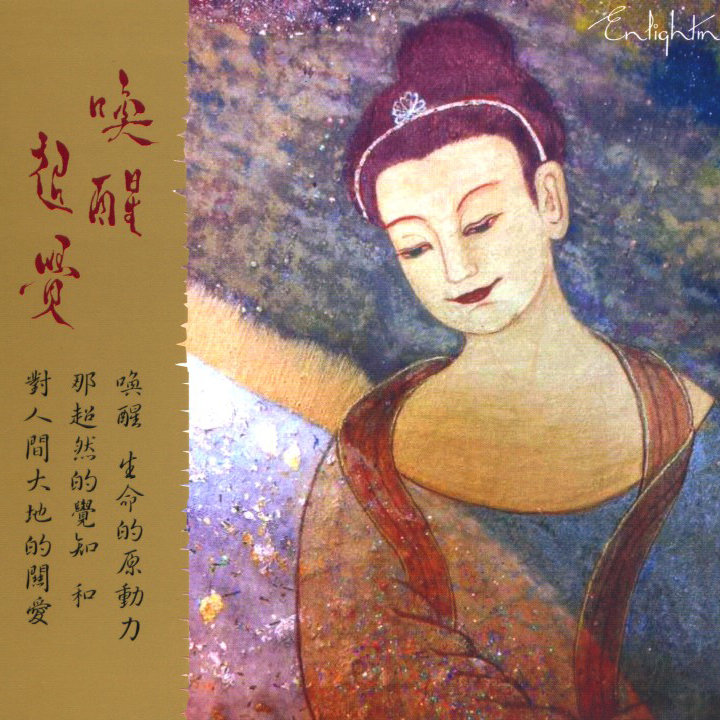 喚醒
超覺
喚醒 生命的原動力
那超然的覺知 和
對人間大地的關愛
Enlightin